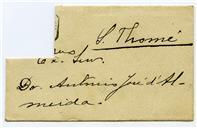 S. Thomé
Ex. Snr.
Dr. Antonio José d'Al-
meida.